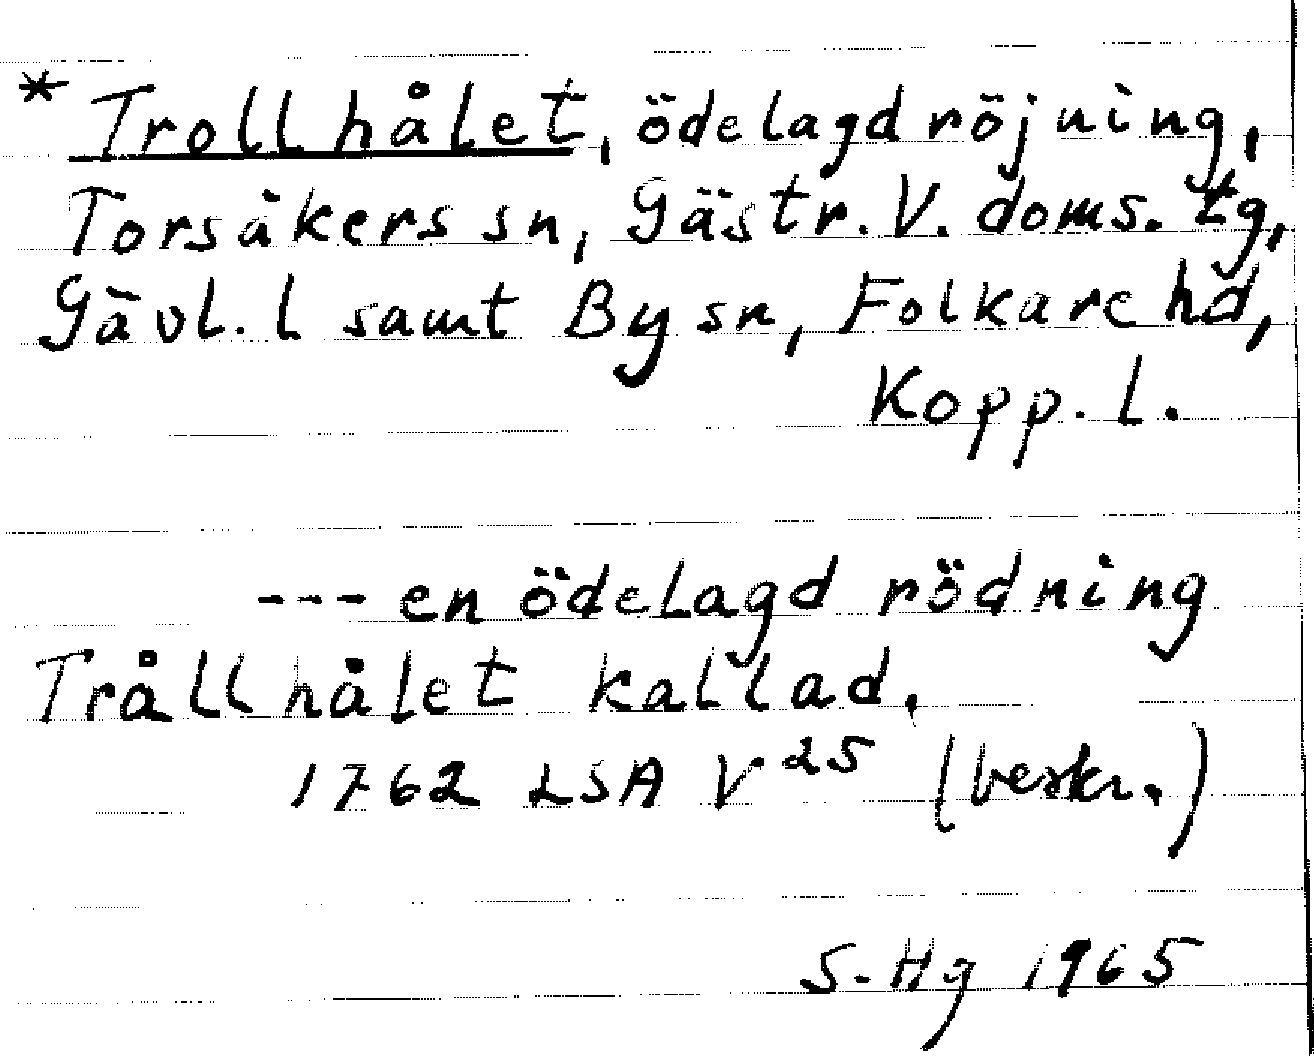 * Trollhålet, ödelagd röjning,
Torsåkers sn, Gästr. V. doms. tg,
Gävl. l samt By sn, Folkare hd,
Kopp. l.
--- en ödelagd rödning
Trållhålet kallad.
1762 LSA V 25 (beskr.)
S-Hg 1965